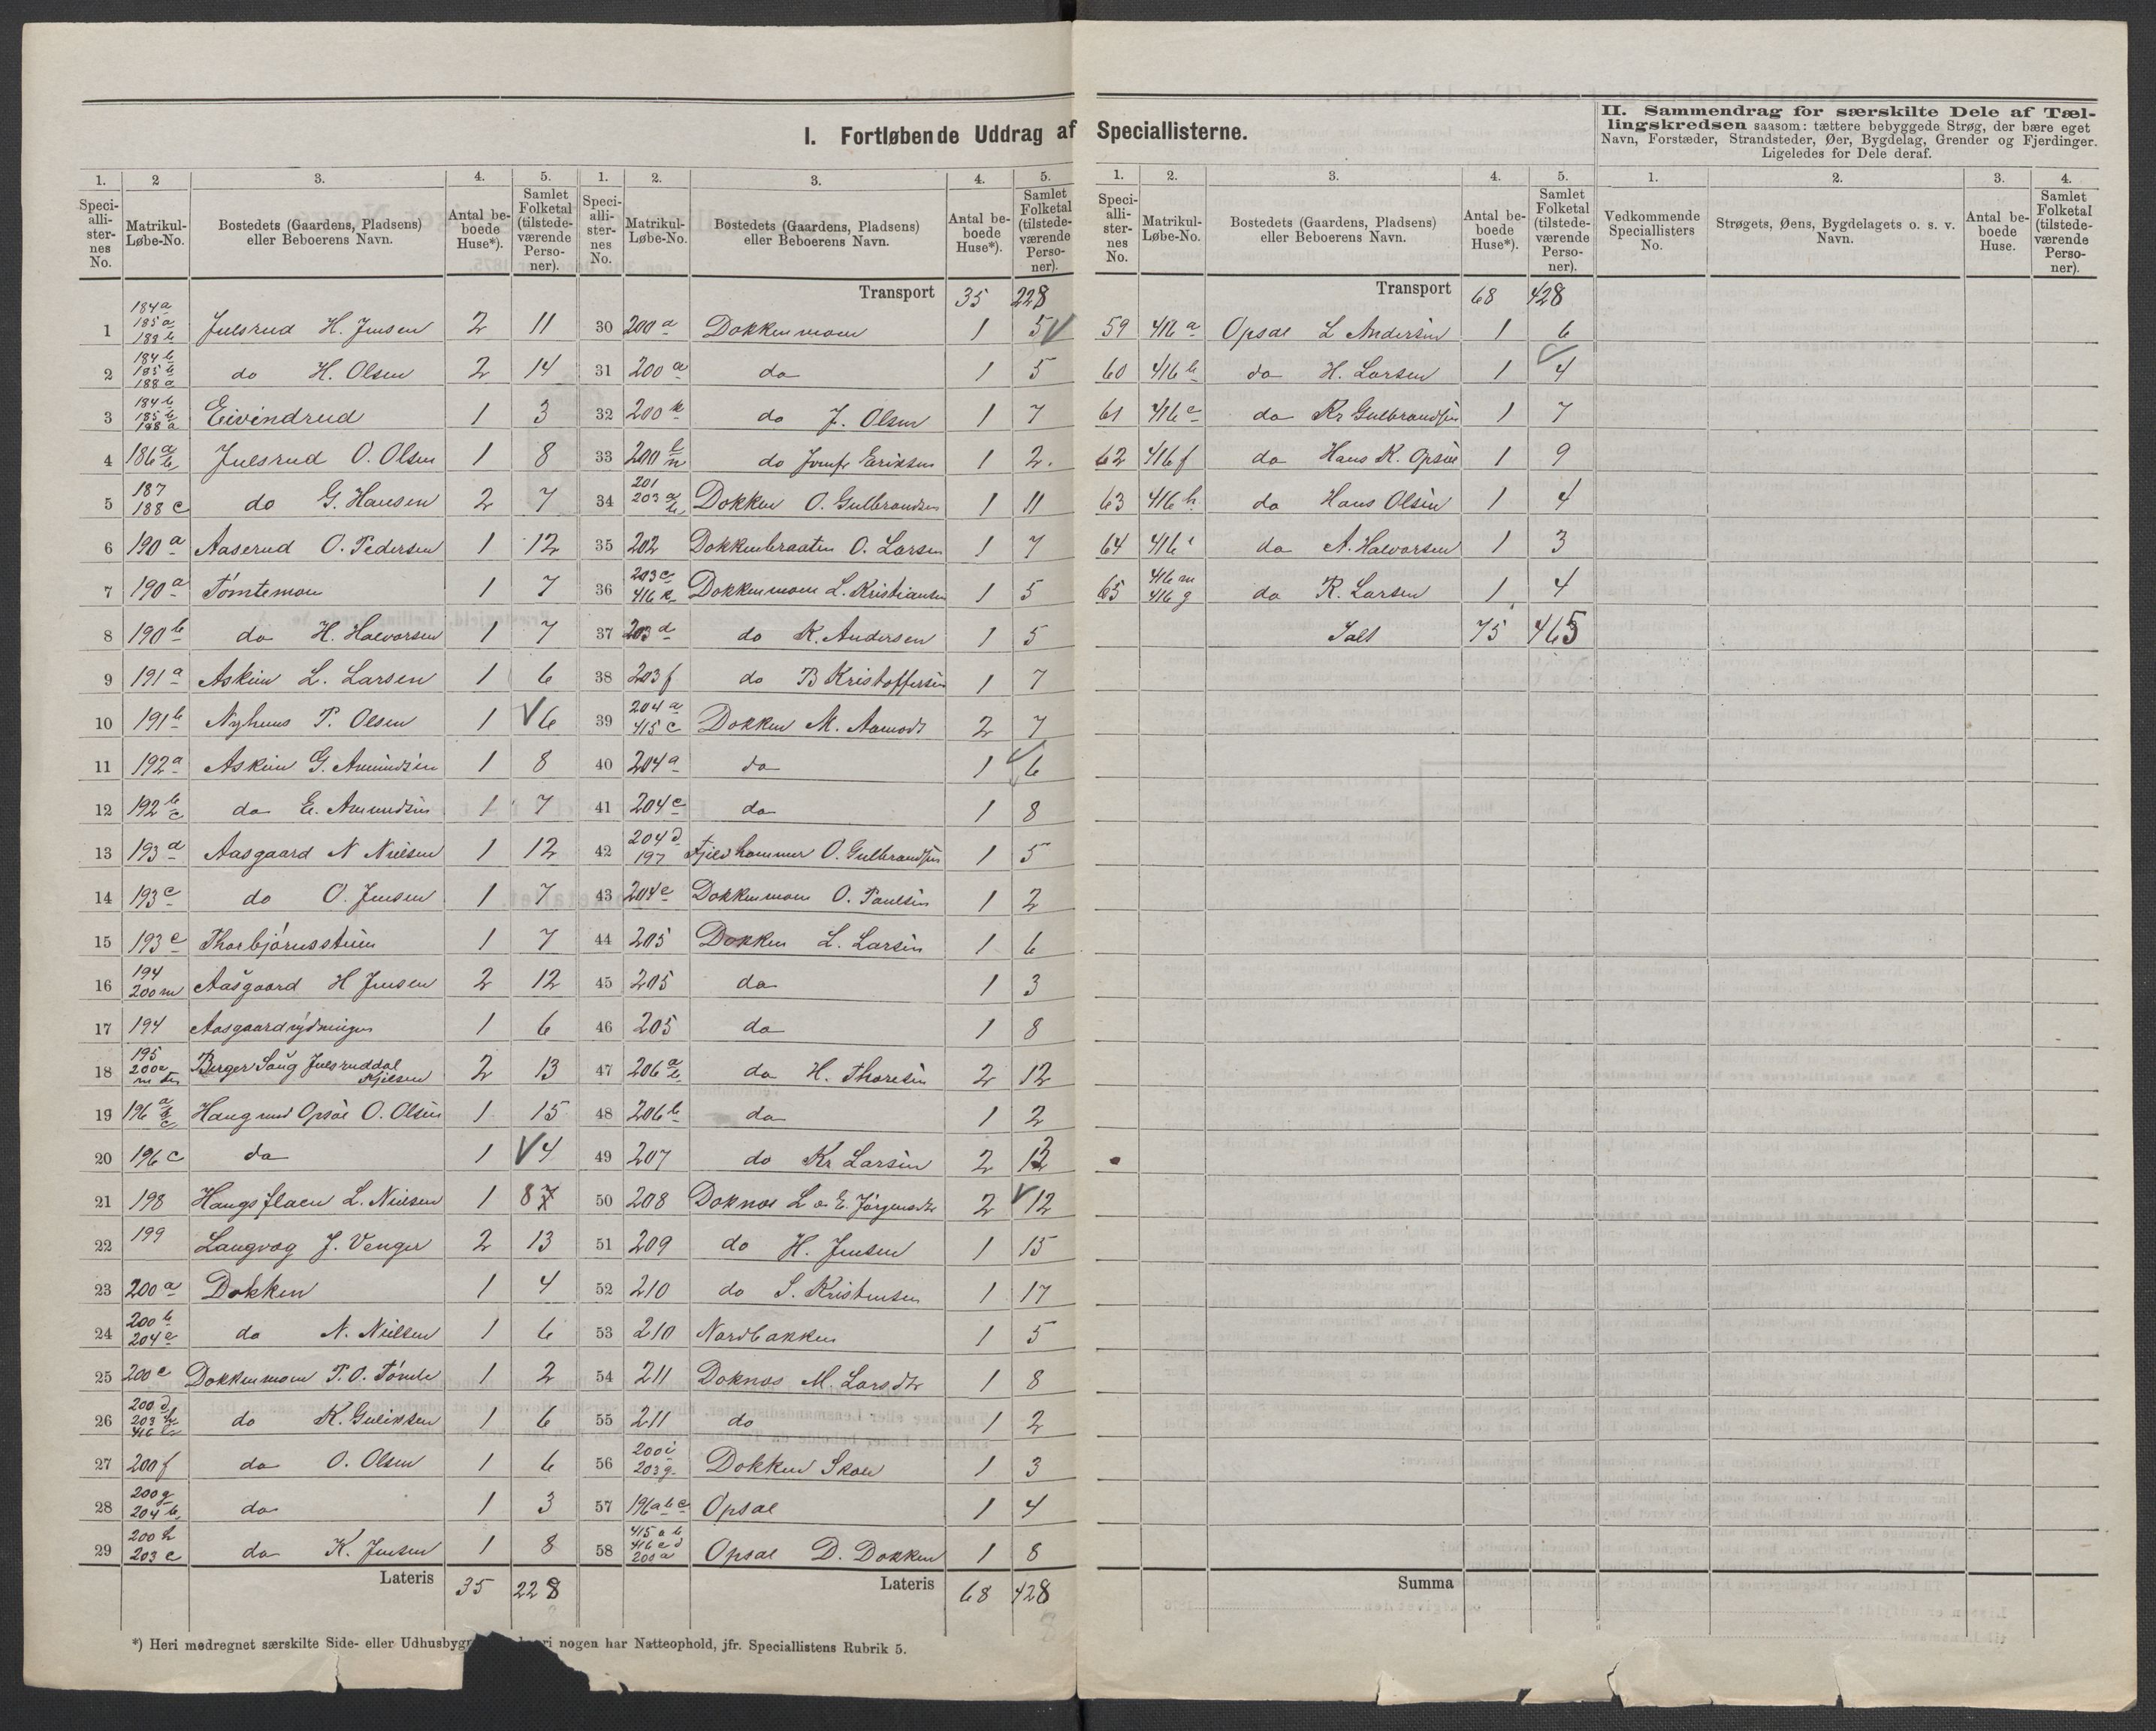 I. Fortløbende Uddrag af Speciallisterne.
II. Sammendrag for særskilte Dele af Tællingskredsen saasom: tættere bebyggede Strøg, der bære eget Navn, Forstæder, Strandsteder, Øer, Bygdelag, Grender og Fjerdinger. Ligeledes for Dele deraf.
1. 2 3. 4. 5.
Speciallisternes No. Matrikul-Løbe-No. Bostedets (Gaardens, Pladsens) eller Beboerens Navn. Antal beboede Huse*). Samlet Folketal (tilstedeværende Personer).
1 184a 185a 188b Julsrud H. Jensen 2 11
2 184b 185b 188a do H. Olsen 2 14
3 184b 185b 188a Eivindrud 1 3
4 186a b Julsrud O. Olsen 1 8
5 187 188c do G. Hansen 2 7
6 190a Aaserud O. Pedersen 1 12
7 190a Tömtemoen 1 7
8 190b do H. Halvorsen 1 7
9 191a Askim L. Larsen 1 6
10 191b Nyhuus P. Olsen 1 6
11 192a Askim G. Amundsen 1 8
12 192b c do E. Amundsen 1 7
13 193d Aasgaard N Nielsen 1 12
14 193c do O. Jensen 1 7
15 193e Thorbjörnsstuen 1 7
16 194 200m Aasgaard H Jensen 2 12
17 194 Aasgaardrydningen 1 6
18 195 200e Berger Saug Julsruddal Kjelsen 2 13
19 196a b c Haug med Opsal O. Olsen 1 15
20 196c do 1 4
21 198 Haugsflaen L. Nielsen 1 8 7
22 199 Langvag J. Venger 2 13
23 200a Dokken 1 4
24 200b 204c do N. Nielsen 1 6
25 200c Dokkenmoen P. O. Tömte 1 2
26 200d 203h 416 do K. Guliksen 1 6
27 200f do O. Olsen 1 6
28 200g 204b do 1 3
29 200h 203e do K. Jensen 1 8
Lateris 35 228
1. 2. 3. 4. 5.
Speciallisternes No. Matrikul-Løbe-No. Bostedets (Gaardens, Pladsens) eller Beboerens Navn. Antal beboede Huse*). Samlet Folketal (tilstedeværende Personer).
Transport 35 228
30 200a Dokkenmoen 1 5
31 200a do 1 5
32 200k do J. Olsen 1 7
33 200l n do Jomfr Eriksen 1 2.
34 201 203a b Dokken O. Gulbrandsen 1 11
35 202 Dokkenbraaten O. Larsen 1 7
36 203c 416k Dokkenmoen L. Kristiansen 1 5
37 203d do K. Andersen 1 5
38 203f do B Kristoffersen 1 7
39 204a 415c Dokken M. Aamodt 2 7
40 204a do 1 6
41 204c do 1 8
42 204d 197 Fjeldhammer O. Gulbrandsen 1 5
43 204e Dokkenmoen O. Paulsen 1 2
44 205 Dokken L. Larsen 1 6
45 205 do 1 3
46 205 do 1 8
47 206a b do H. Thoresen 2 12
48 206b do 1 2
49 207 do Kr Larsen 2 12
50 208 Doknes L o E. Jörgensdtr 2 12
51 209 do H. Jensen 1 15
52 210 do S. Kristensen 1 17
53 210 Nordbakken 1 5
54 211 Doknes M. Larsdtr 1 8
55 211 do 1 2
56 200i 203g Dokken Skole 1 3
57 196a b c Opsal 1 4
58 415a b 416c d 200a Opsal D. Dokken 1 8
Lateris 68 428
*) Heri medregnet særskilte Side- eller Udhusbygn ri nogen har Natteophold, jfr. Speciallistens Rubrik 5.
1. 2. 3. 4. 5.
Speciallisternes No. Matrikul-Løbe-No. Bostedets (Gaardens, Pladsens) eller Beboerens Navn. Antal beboede Huse*). Samlet Folketal (tilstedeværende Personer).
Transport 68 428
59 416a Opsal L Andersen 1 6
60 416b do H. Larsen 1 4
61 416e do Kr Gulbrandsen 1 7
62 416f do Hans K. Opsal 1 9
63 416h do Hans Olsen 1 4
64 416i do A. Halvorsen 1 3
65 416m 416g do R. Larsen 1 4
Ialt 75 465
Summa
1. 2. 3. 4.
Vedkommende Speciallisters No. Strøgets, Øens, Bygdelagets o. s. v. Navn. Antal beboede Huse. Samlet Folketal (tilstedeværende Personer).